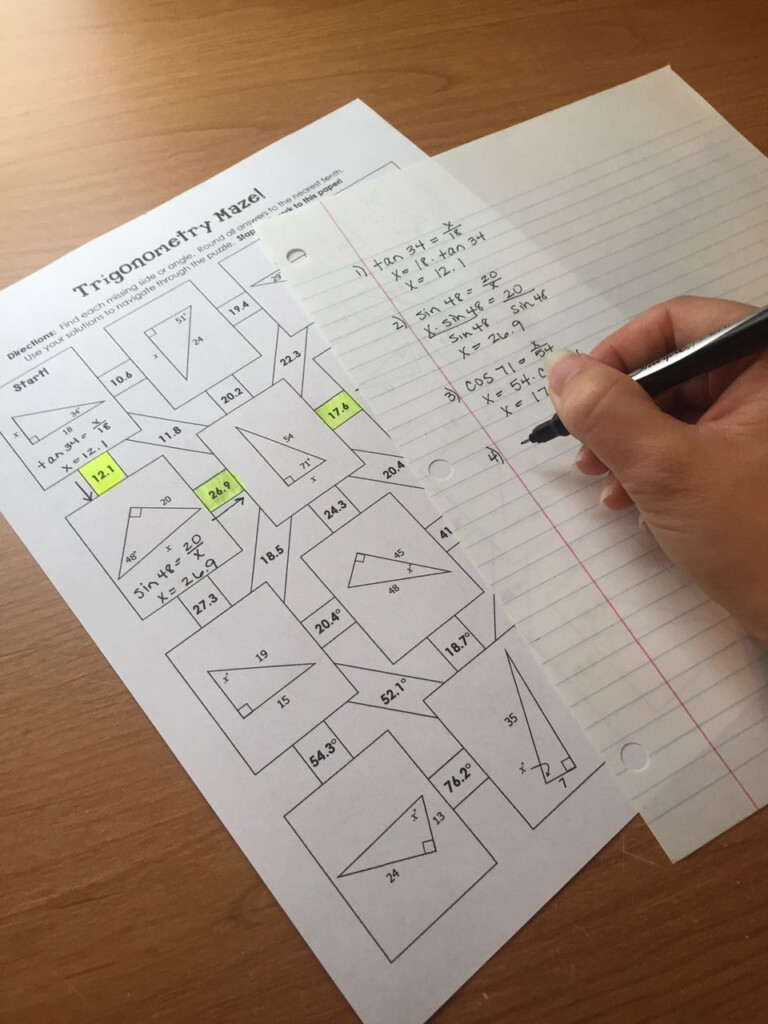 Trigonometry Maze!
Directions: Find each missing side or angle. Round all answers to the nearest tenth.
Use your solutions to navigate through the puzzle. to this paper!
Start!
x
34°
18
tan 34 = x/18
x = 12.1
10.6
51°
x
24
19.4
11.8
20.2
22.3
12.1
20
48°
x
sin 48 = 20/x
x = 26.9
26.9
54
71°
x
17.6
20.4
24.3
41
18.5
27.3
45
x°
48
20.4°
18.7°
19
x°
15
52.1°
54.3°
35
x°
7
76.2°
x°
13
24
1) tan 34 = x/18
x = 18 · tan 34
x = 12.1
2) sin 48 = 20/x
x · sin 48 = 20
sin 48 sin 48
x = 26.9
3) cos 71 = x/54
x = 54 · c
x = 17
4)